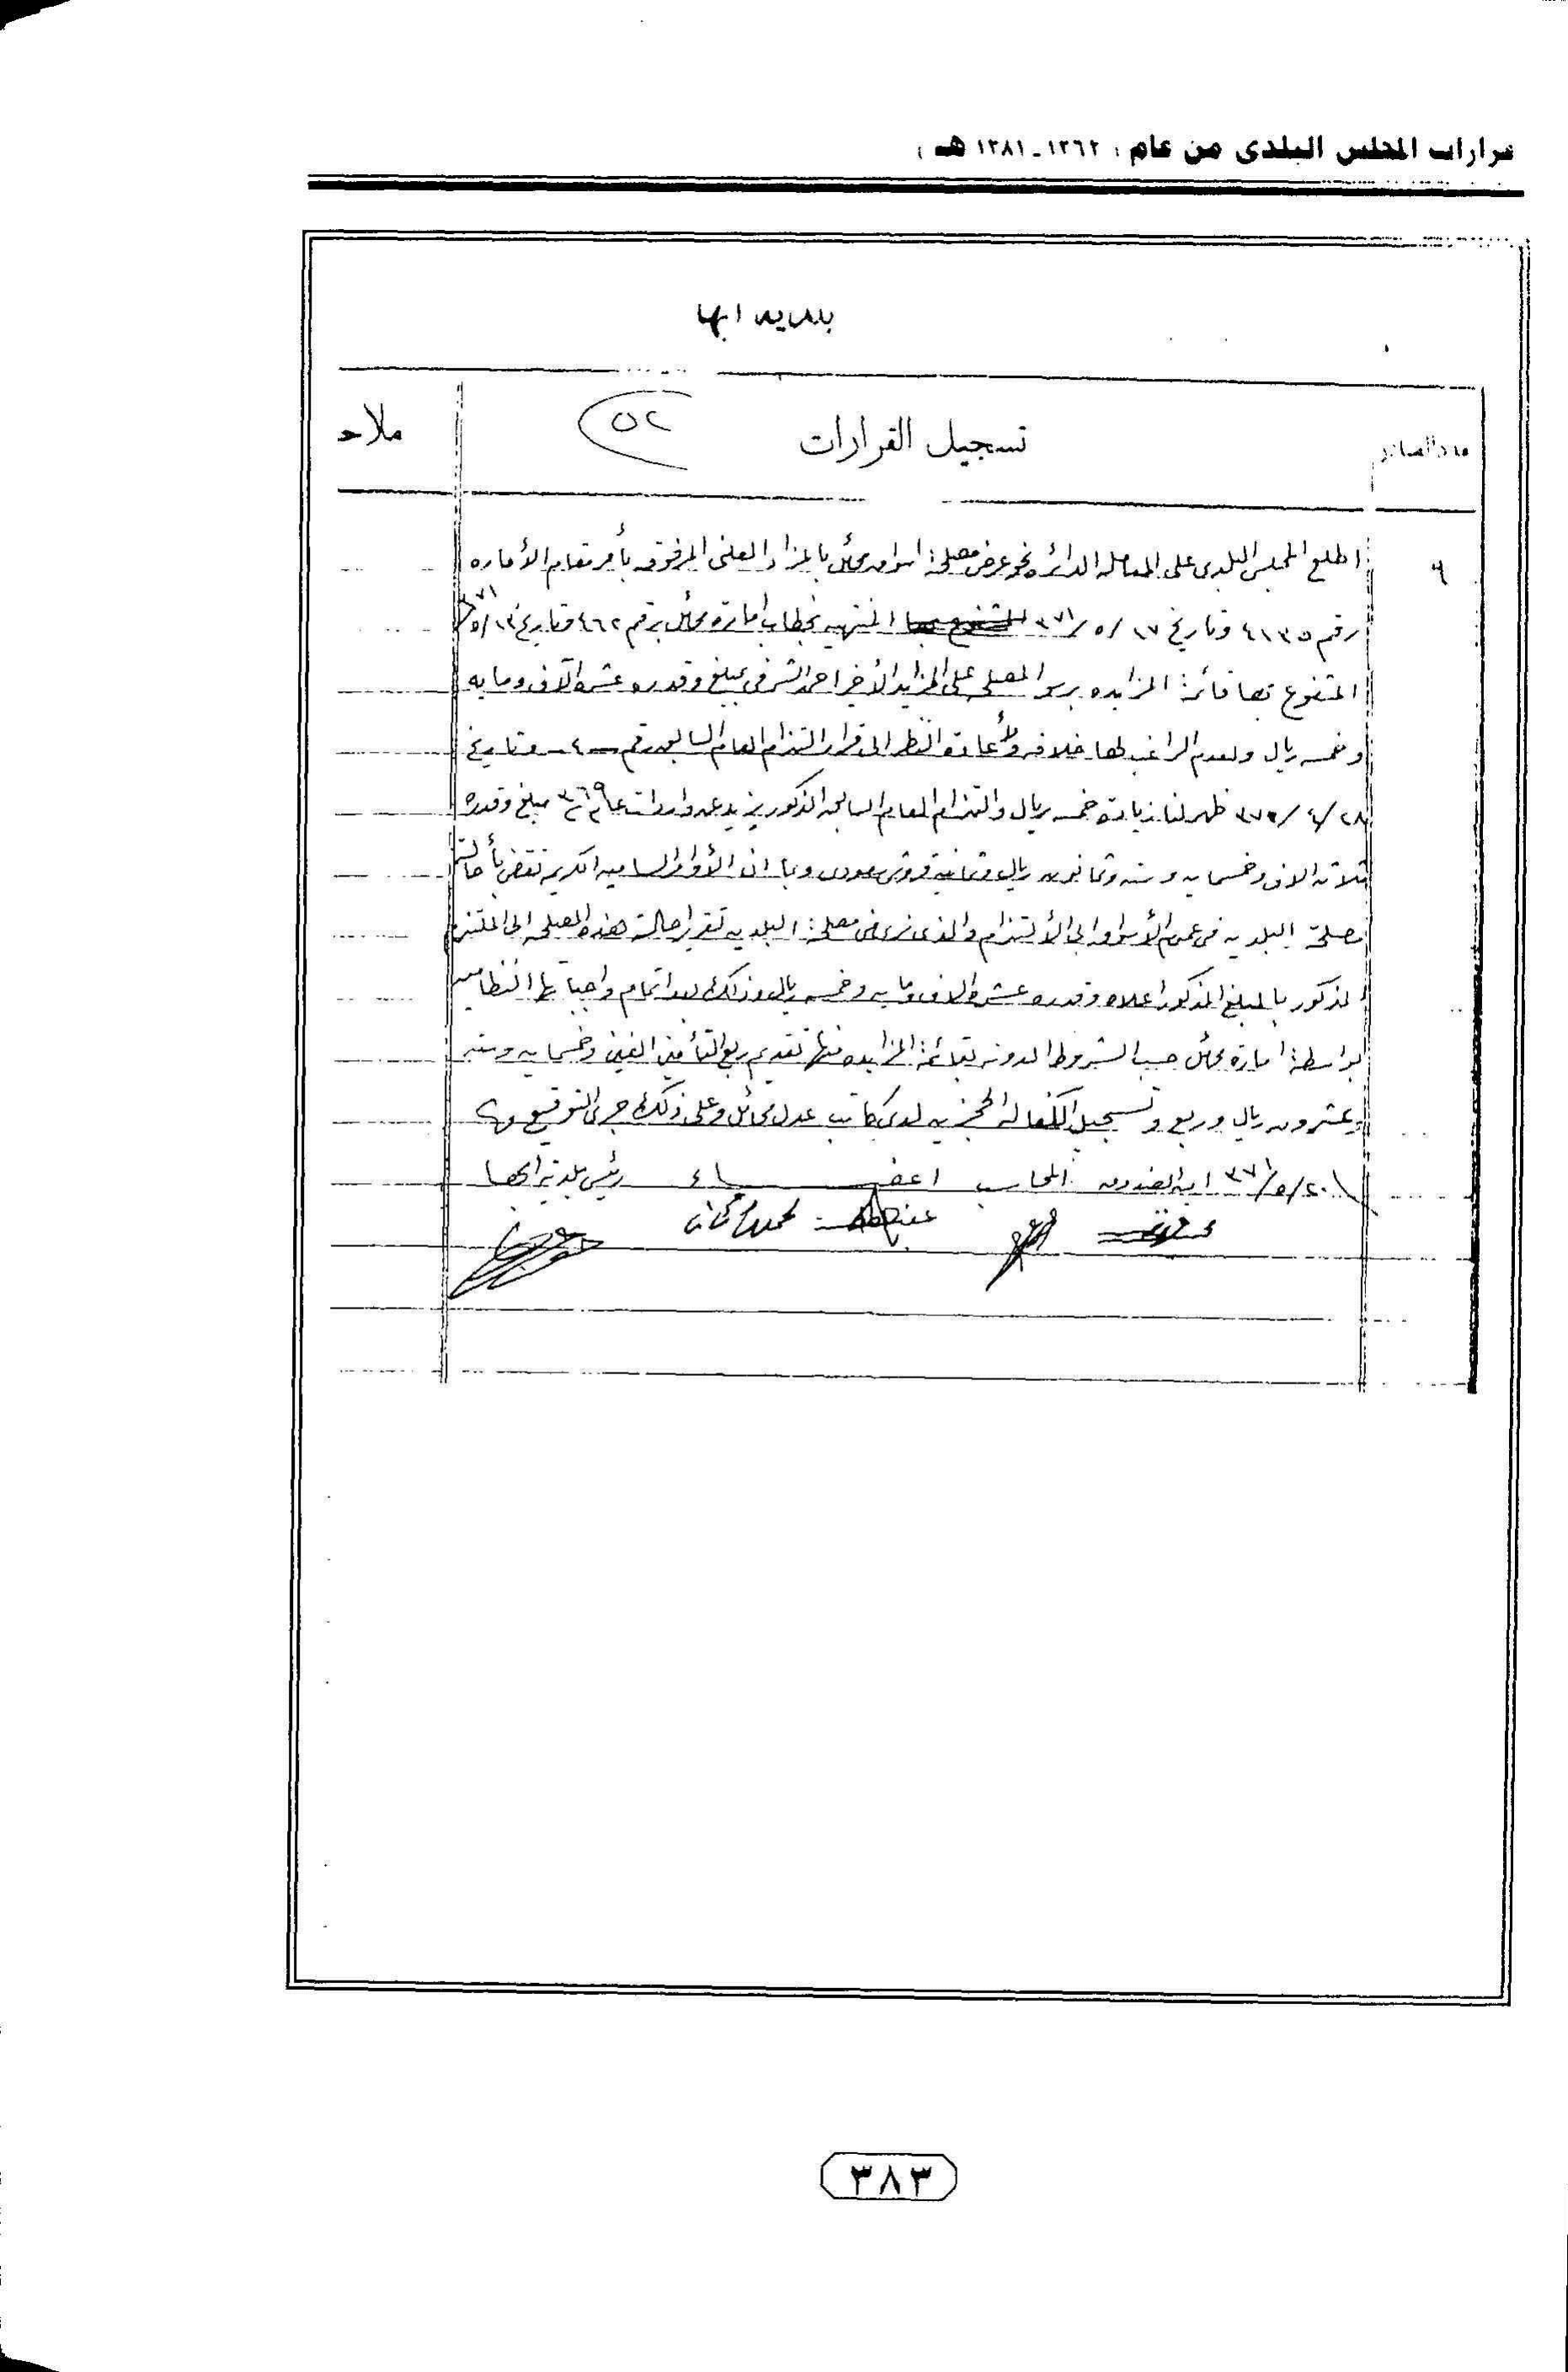 قرارات المجلس البلدى من عام ( ١٣٦٢ - ١٣٨١ هـ )
بلدية ابها
عدد الصادر
تسجيل القرارات
٥٢
ملا
٦
اطلع المجلس البلدى على المعامله الدائره نحو عرض مصلحة اسواق محائل بالمزاد العلنى المرفوقه بأمر مقام الأماره
رقم ٤١٣٥ وتاريخ ١٧/٥/٣٧١ المنتهيه بخطاب امارة محائل برقم ٤٦٢ وتاريخ ١٣/٥/٣٧١
المتفوع بها قائمة المزايده برسو المصلحه على المزايد الأخير احمد الشرفى بمبلغ وقدره عشرة آلاف ومايه
وخمسه ريال ولعدم الراغب لها خلافه ولأعادة النظر الى قرار التزام العام السابق رقم ـ ٤ ـ وتاريخ
٢٨/٤/٣٧٠ ظهر لنا زيادة خمسه ريال والتزام العام السابق المذكور يزيد عن واردات عام ٣٦٩ مبلغ وقدره
ثلاثة الاف وخمسمايه وسته وثمانون ريال وثمانية قروش وبما ان الأوامر الساميه الكريمه تقضى بأحالة
مصلحة البلديه فى عموم الأسواق الى الألتزام والذى نرى فى مصلحة البلديه تقرير احالة هذه المصلحه الى الملتزم
المذكور بالمبلغ المذكور اعلاه وقدره عشرة الاف ومايه وخمسه ريال وذلك بعد اتمام واجباتها النظاميه
بواسطة امارة محائل حسب الشروط المدونه بقائمة المزايده منها تقديم ربع التأمين الفين وخمسمايه وسته
وعشرون ريال وربع وتسجيل الكفاله الحجزيه لدى كاتب عدل محائل وعلى ذلك جرى التوقيع
٢٠/٥/٣٧١ امين الصندوق المحاسب اعضـــاء رئيس بلدية ابها
٣٨٣